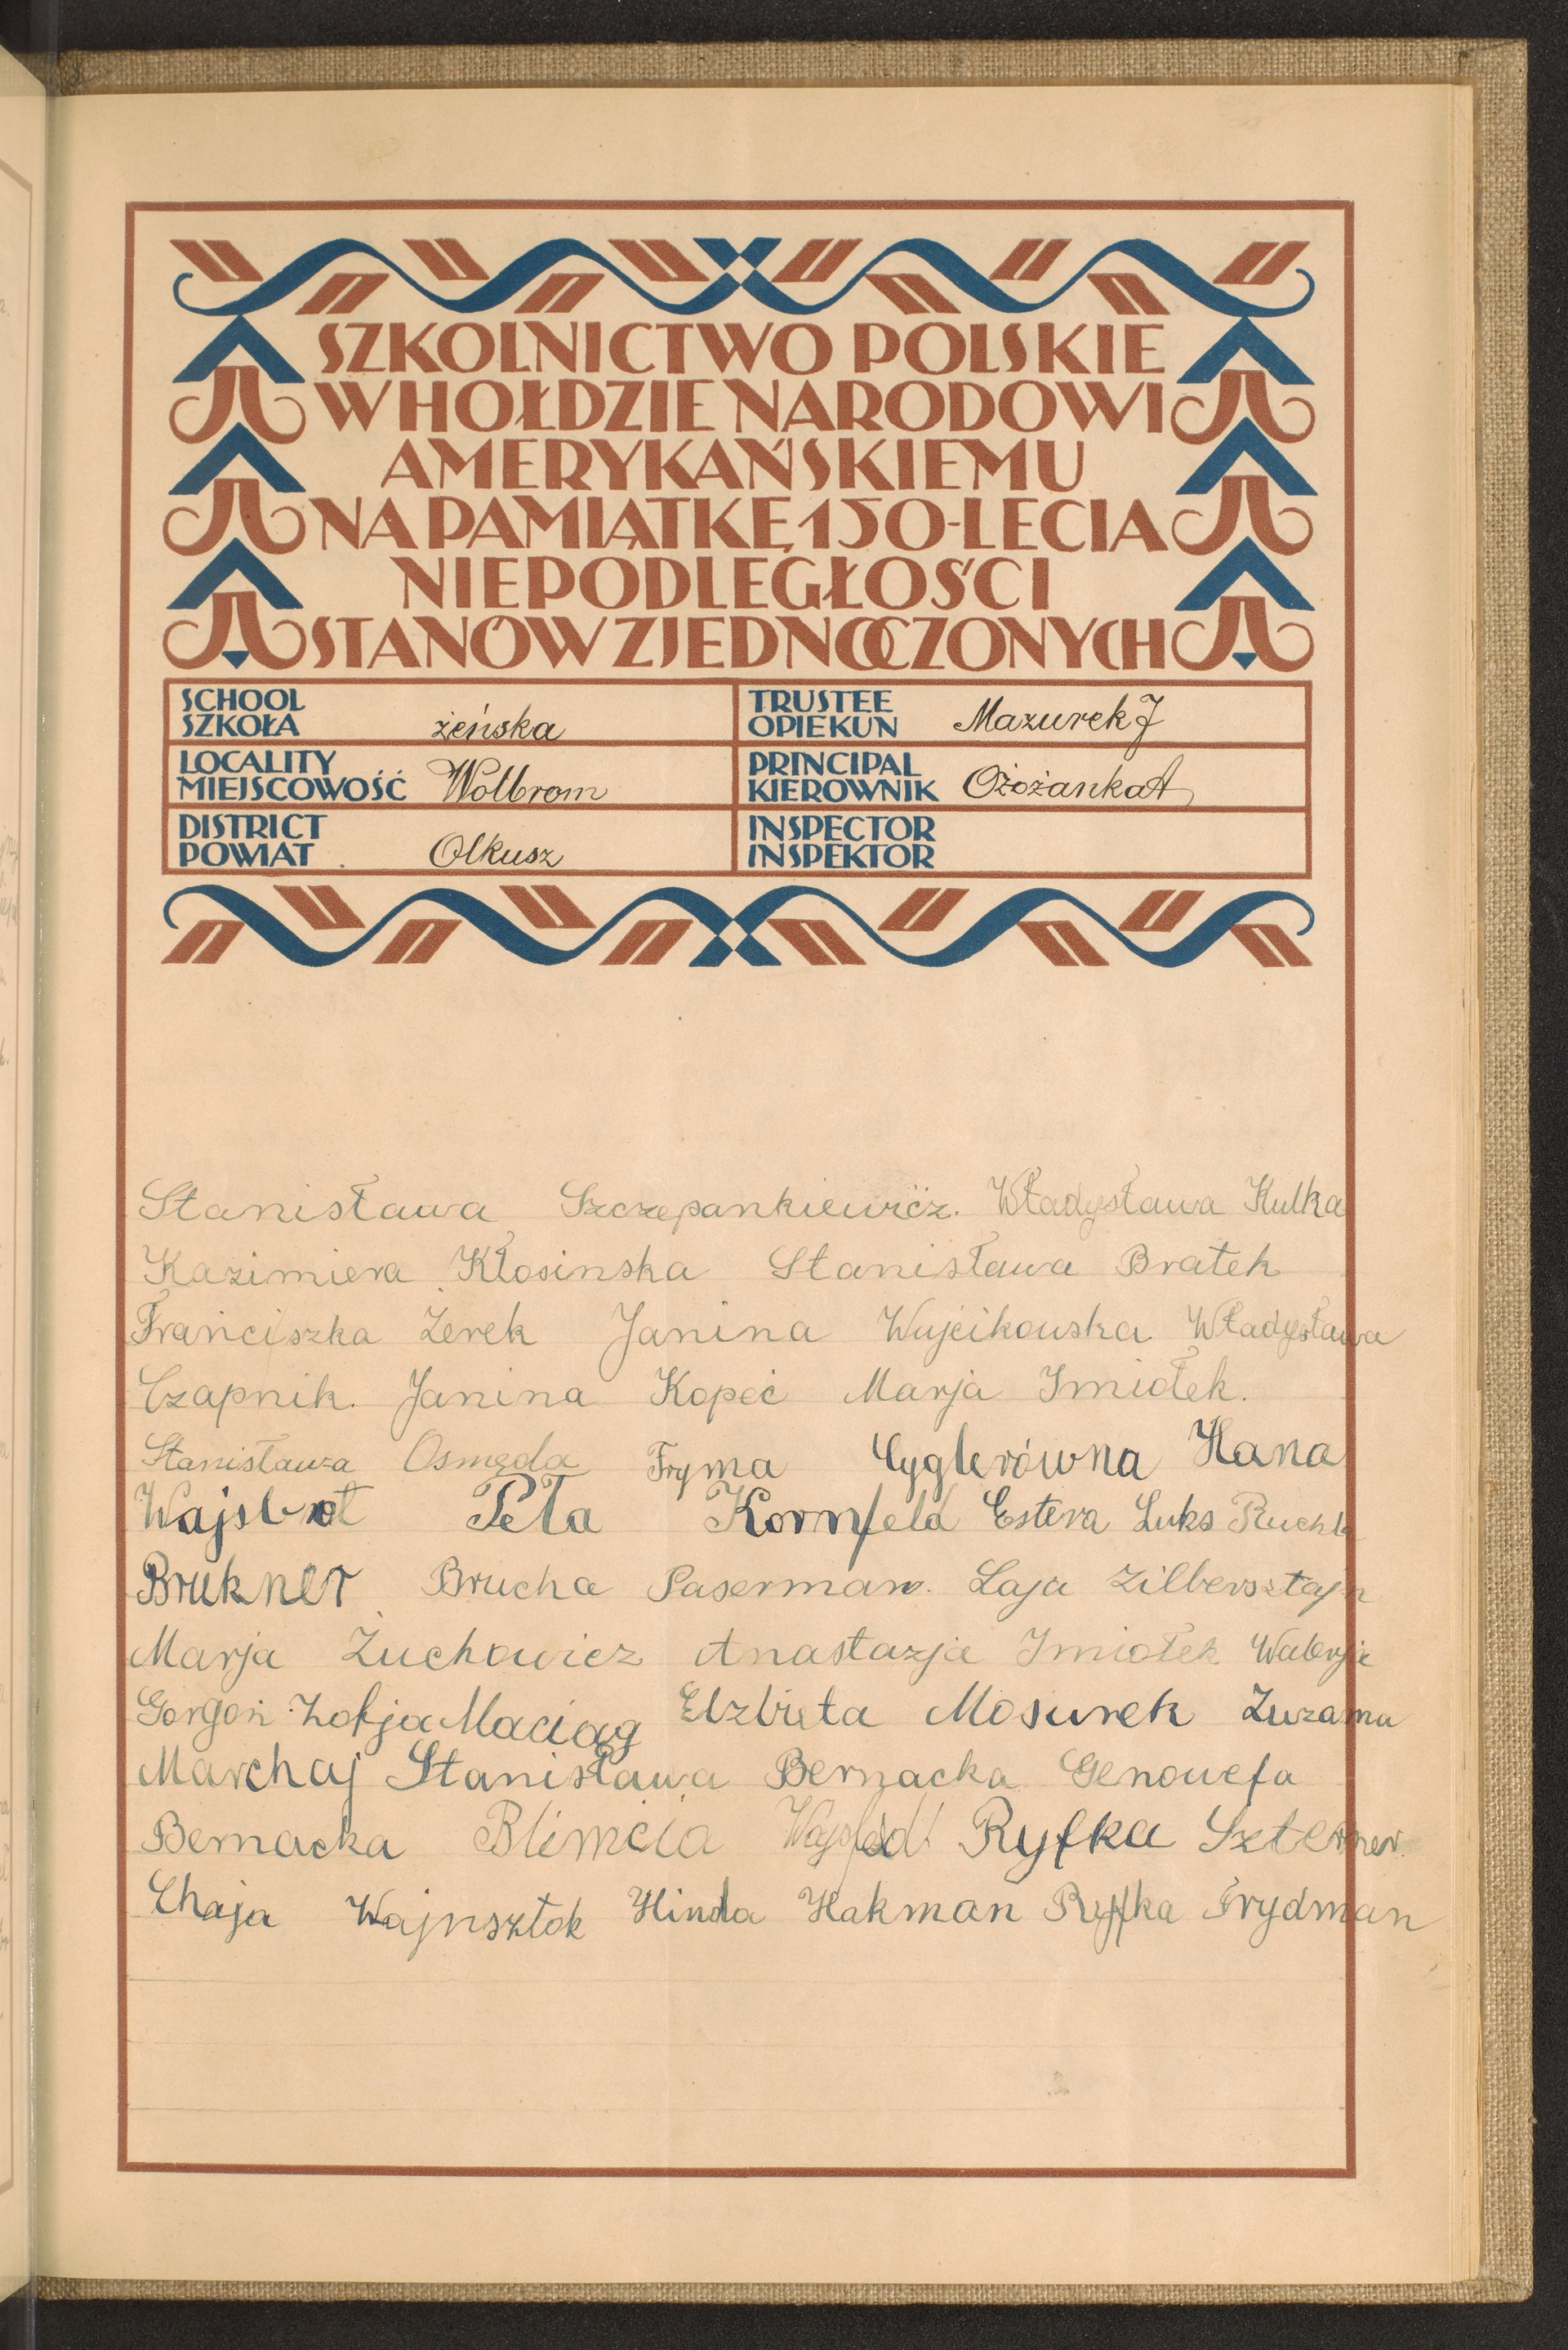 SZKOLNICTWO POLSKIE
W HOŁDZIE NARODOWI
AMERYKAŃSKIEMU
NA PAMIĄTKĘ 150-LECIA
NIEPODLEGŁOŚCI
STANÓW ZJEDNOCZONYCH
SCHOOL
SZKOŁA żeńska
TRUSTEE
OPIEKUN Mazurek J
LOCALITY
MIEJSCOWOŚĆ Wolbrom
PRINCIPAL
KIEROWNIK Ożożanka A
DISTRICT
POWIAT Olkusz
INSPECTOR
INSPEKTOR
Stanisława Szczepankiewicz. Władysława Kulka
Kazimiera Kłosinska Stanisława Bratek
Franciszka Żerek Janina Wujcikowska Władysława
Czapnik. Janina Kopeć Marja Imiołek.
Stanisława Osmęda Fryma Cyglerówna Hana
Wajsbrot Peła Kornfeld Estera Luks Ruchla
Brukner Brucha Paserman. Laja Zilbersztajn
Marja Żuchowicz Anastazja Imiołek Walerja
Gorgoń Zofja Maciąg Elzbieta Mosurek Zuzanna
Marchaj Stanisława Bernacka Genowefa
Bernacka Blimcia Ryfka Szterner.
Chaja Wajnsztok Hinda Hakman Ryfka Frydman